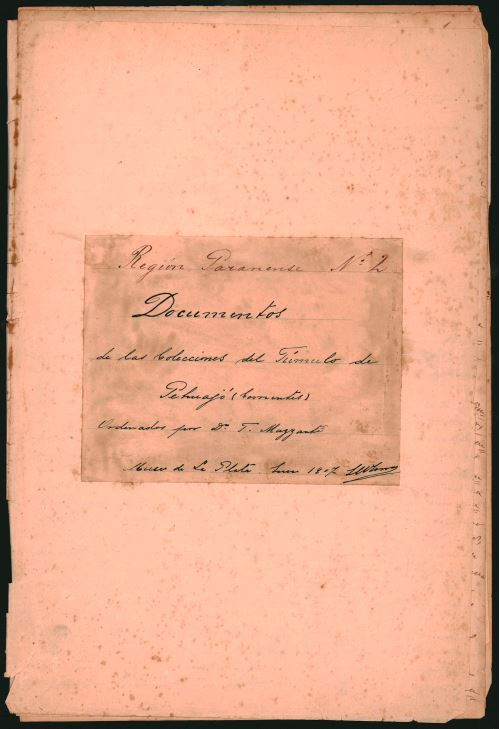 Región Paranense Nº 2
Documentos
de las Colecciones del Túmulo de
Pehuajó (Corrientes)
Ordenados por D. T. Mazzanti
Museo de La Plata